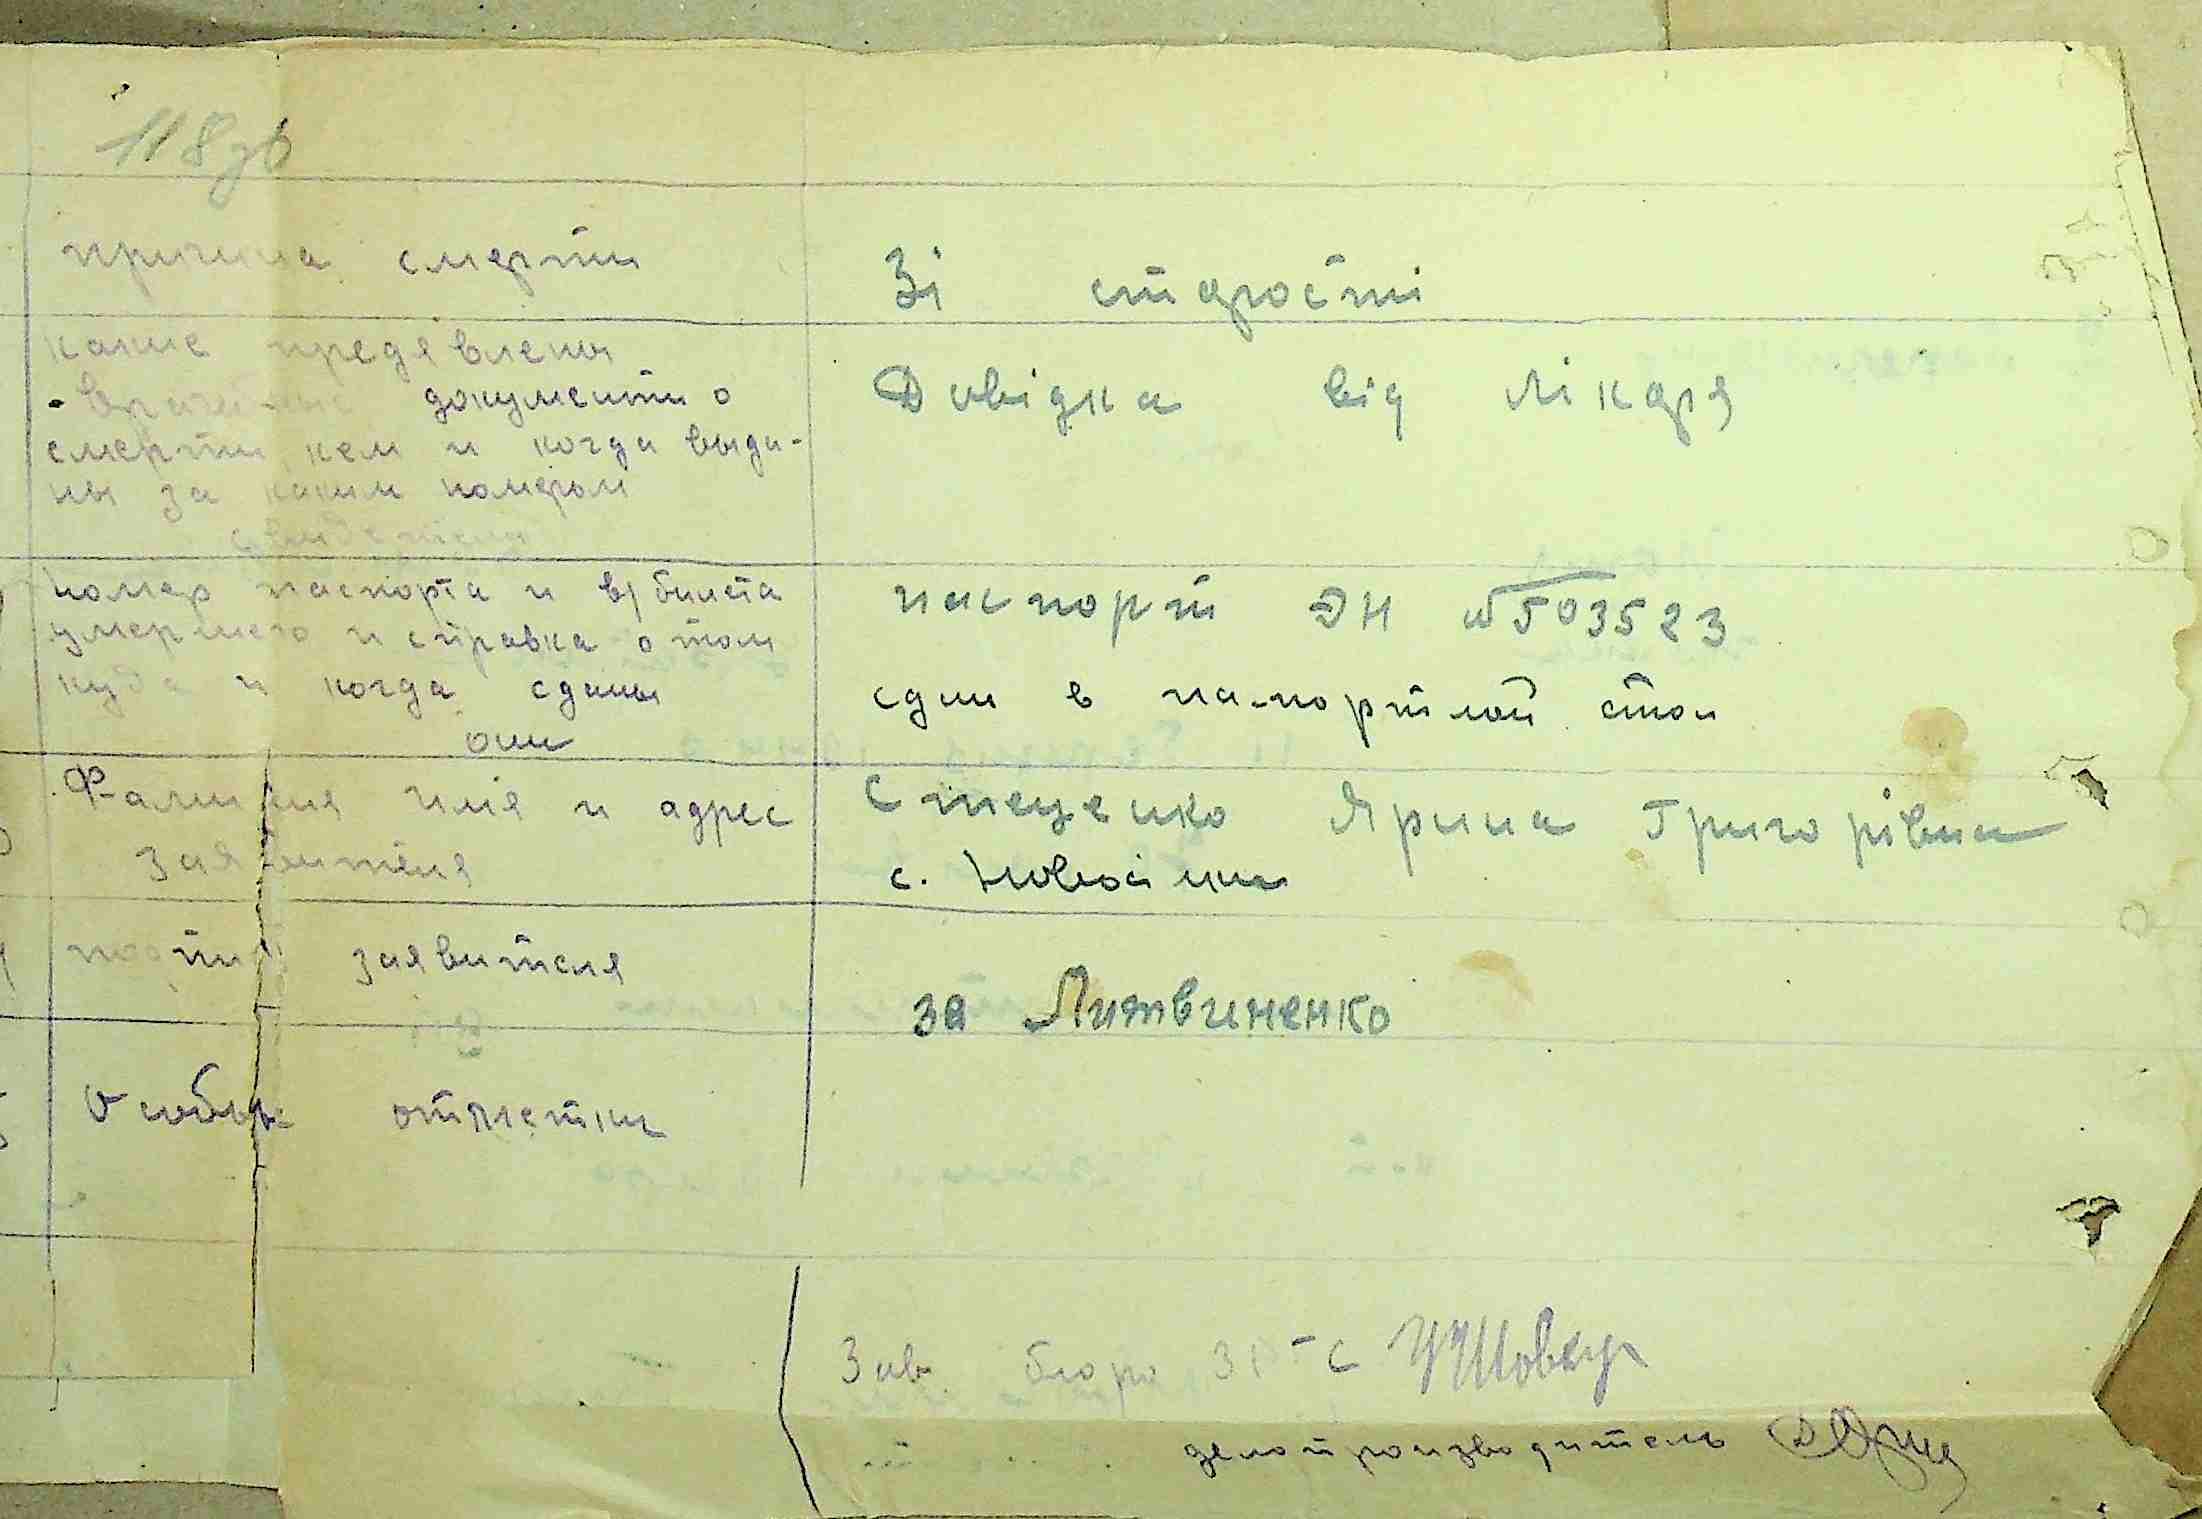 118зв
причина смерти
Зі старости
какие предявлены
врачебные документи о
смерти, кем и когда выда-
ны за каким номером
Довідка від лікаря
номер паспорта и в/билета
умершего и справка о том
куда и когда сданы
они
паспорт ЭН №503523
сдан в паспортной стол
Фамилия имя и адрес
заявителя
Стеценко Ярина Григорівна
с. Новосілки
подпись заявителя
за Литвиненко
Особые отметки
Зав бюро ЗАГС
делопроизводитель